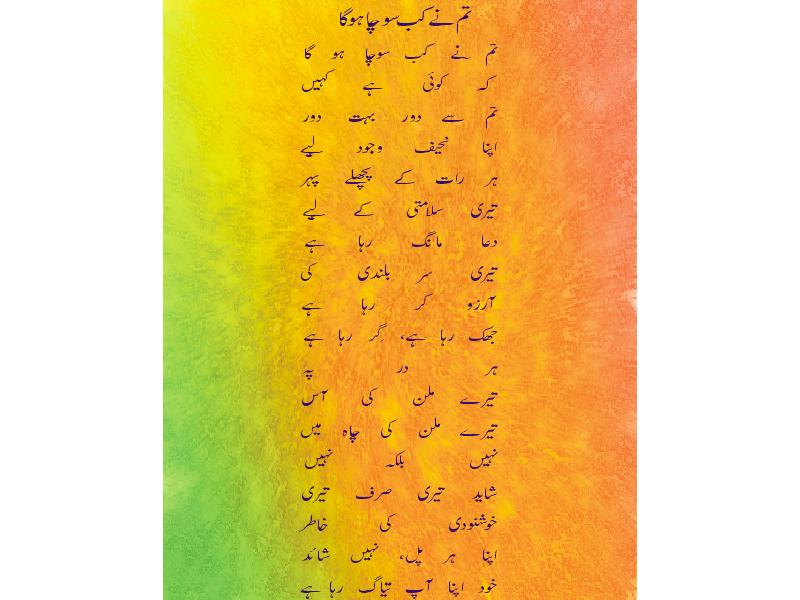 تم نے کب سوچا ہوگا
تم نے کب سوچا ہو گا
کہ کوئی ہے کہیں
تم سے دور بہت دور
اپنا نحیف وجود لیے
ہر رات کے پچھلے پہر
تیری سلامتی کے لیے
دعا مانگ رہا ہے
تیری سر بلندی کی
آرزو کر رہا ہے
جھک رہا ہے، گِر رہا ہے
ہر در پہ
تیرے ملن کی آس
تیرے ملن کی چاہ میں
نہیں بلکہ نہیں
شاید تیری صرف تیری
خوشنودی کی خاطر
اپنا ہر پل، نہیں شائد
خود اپنا آپ تیاگ رہا ہے